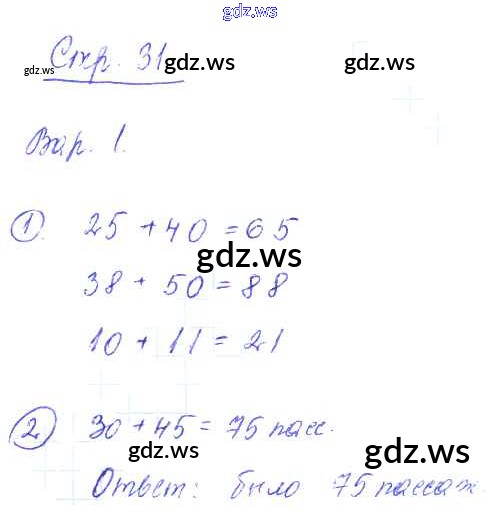 gdz.ws
Стр. 31
gdz.ws gdz.ws
Вар. 1.
1. 25 + 40 = 65
gdz.ws
38 + 50 = 88
10 + 11 = 21
gdz.ws
2. 30 + 45 = 75 пасс.
gdz.ws gdz.ws
Ответ: было 75 пассаж.
gdz.ws